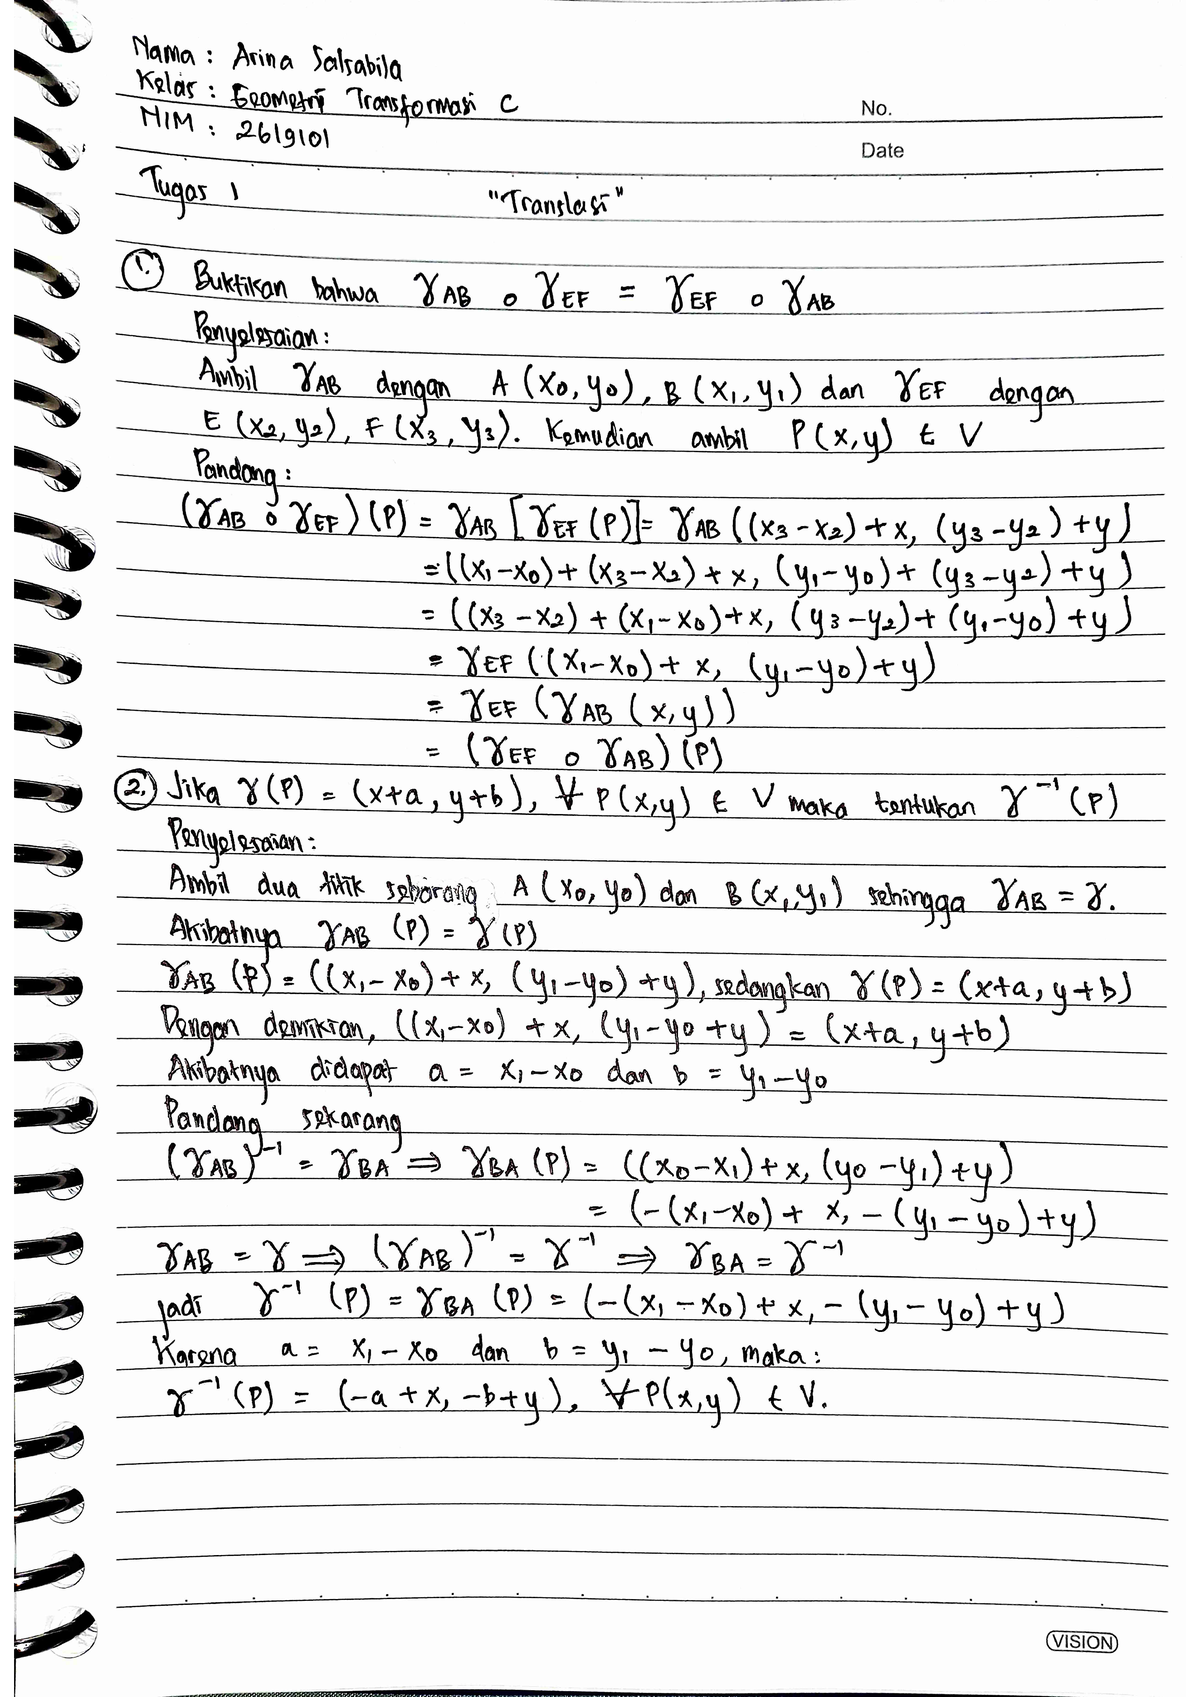 Nama : Arina Salsabila
Kelas : Geometri Transformasi C
No.
NIM : 2619101
Date
Tugas 1
"Translasi"
1. Buktikan bahwa γAB o γEF = γEF o γAB
Penyelesaian :
Ambil γAB dengan A (x0, y0), B (x1, y1) dan γEF dengan
E (x2, y2), F (x3, y3). Kemudian ambil P(x,y) ∈ V
Pandang :
(γAB o γEF)(P) = γAB [γEF (P)] = γAB ((x3-x2)+x, (y3-y2)+y)
= ((x1-x0)+(x3-x2)+x, (y1-y0)+(y3-y2)+y)
= ((x3-x2)+(x1-x0)+x, (y3-y2)+(y1-y0)+y)
= γEF ((x1-x0)+x, (y1-y0)+y)
= γEF (γAB (x,y))
= (γEF o γAB)(P)
2. Jika γ(P) = (x+a, y+b), ∀ P(x,y) ∈ V maka tentukan γ⁻¹(P)
Penyelesaian :
Ambil dua titik sebarang A (x0, y0) dan B(x1,y1) sehingga γAB = γ.
Akibatnya γAB (P) = γ(P)
γAB (P) = ((x1-x0)+x, (y1-y0)+y), sedangkan γ(P) = (x+a, y+b)
Dengan demikian, ((x1-x0)+x, (y1-y0+y) = (x+a, y+b)
Akibatnya didapat a = x1-x0 dan b = y1-y0
Pandang sekarang
(γAB)⁻¹ = γBA ⇒ γBA (P) = ((x0-x1)+x, (y0-y1)+y)
= (-(x1-x0)+x, -(y1-y0)+y)
γAB = γ ⇒ (γAB)⁻¹ = γ⁻¹ ⇒ γBA = γ⁻¹
jadi γ⁻¹ (P) = γBA (P) = (-(x1-x0)+x, -(y1-y0)+y)
Karena a = x1-x0 dan b = y1-y0, maka :
γ⁻¹(P) = (-a+x, -b+y), ∀ P(x,y) ∈ V.
VISION